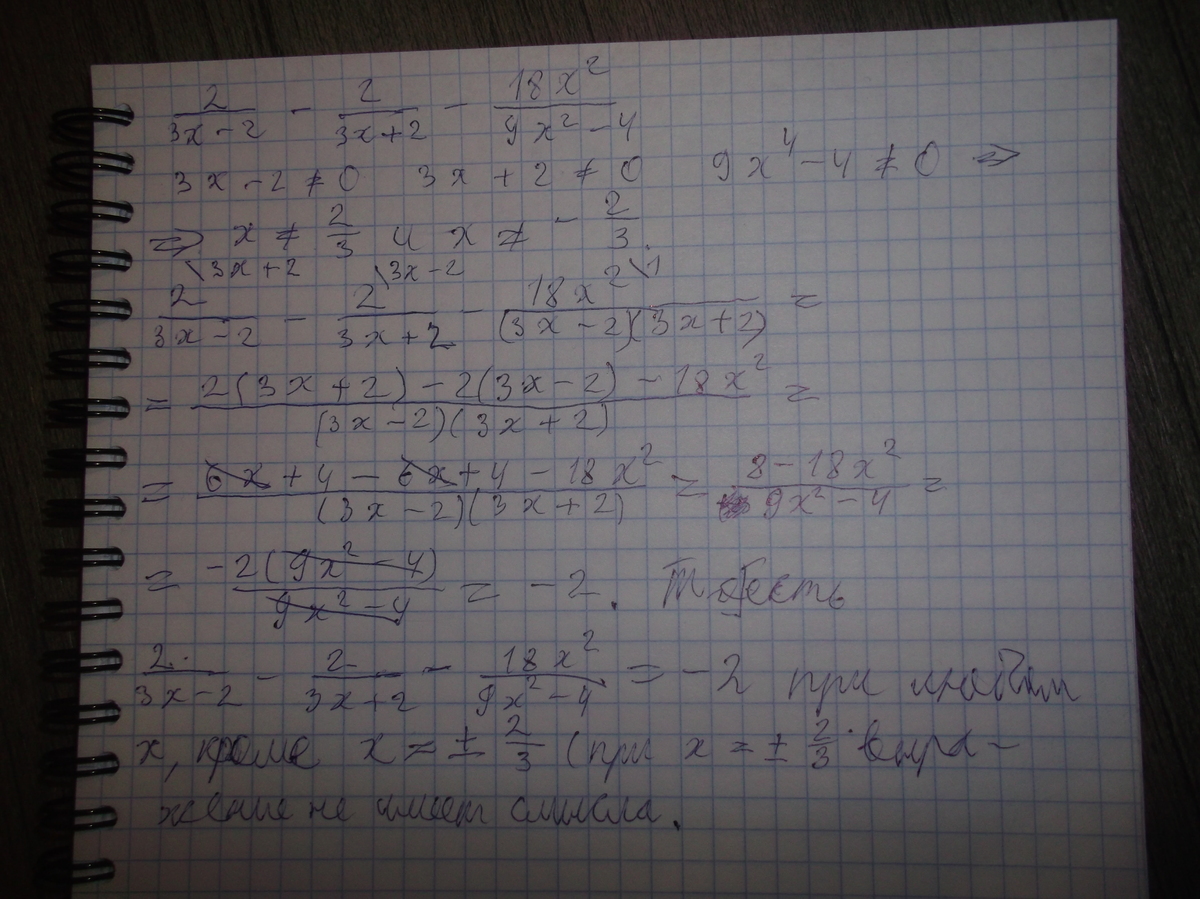 2/(3x-2) - 2/(3x+2) - 18x²/(9x²-4)
3x-2≠0 3x+2≠0 9x⁴-4≠0 ⇒
⇒ x≠2/3 и x≠-2/3.
2\3x+2/(3x-2) - 2\3x-2/(3x+2) - 18x²\1/((3x-2)(3x+2)) =
= (2(3x+2)-2(3x-2)-18x²)/((3x-2)(3x+2)) =
= (6x+4-6x+4-18x²)/((3x-2)(3x+2)) = (8-18x²)/(9x²-4) =
= -2(9x²-4)/(9x²-4) = -2. То есть
2/(3x-2) - 2/(3x+2) - 18x²/(9x²-4) = -2 при любом
x, кроме x=±2/3 (при x=±2/3 выра-
жение не имеет смысла.